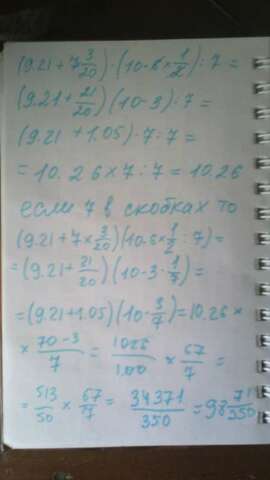 (9.21 + 7 3/20) · (10 - 6 × 1/2) : 7 =
(9.21 + 21/20) (10 - 3) : 7 =
(9.21 + 1.05) · 7 : 7 =
= 10.26 × 7 : 7 = 10.26
если 7 в скобках то
(9.21 + 7 × 3/20) (10 - 6 × 1/2 : 7) =
= (9.21 + 21/20) (10 - 3 · 1/7) =
= (9.21 + 1.05) (10 - 3/7) = 10.26 ×
× 70 - 3/7 = 1026/100 × 67/7 =
= 513/50 × 67/7 = 34371/350 = 98 71/350